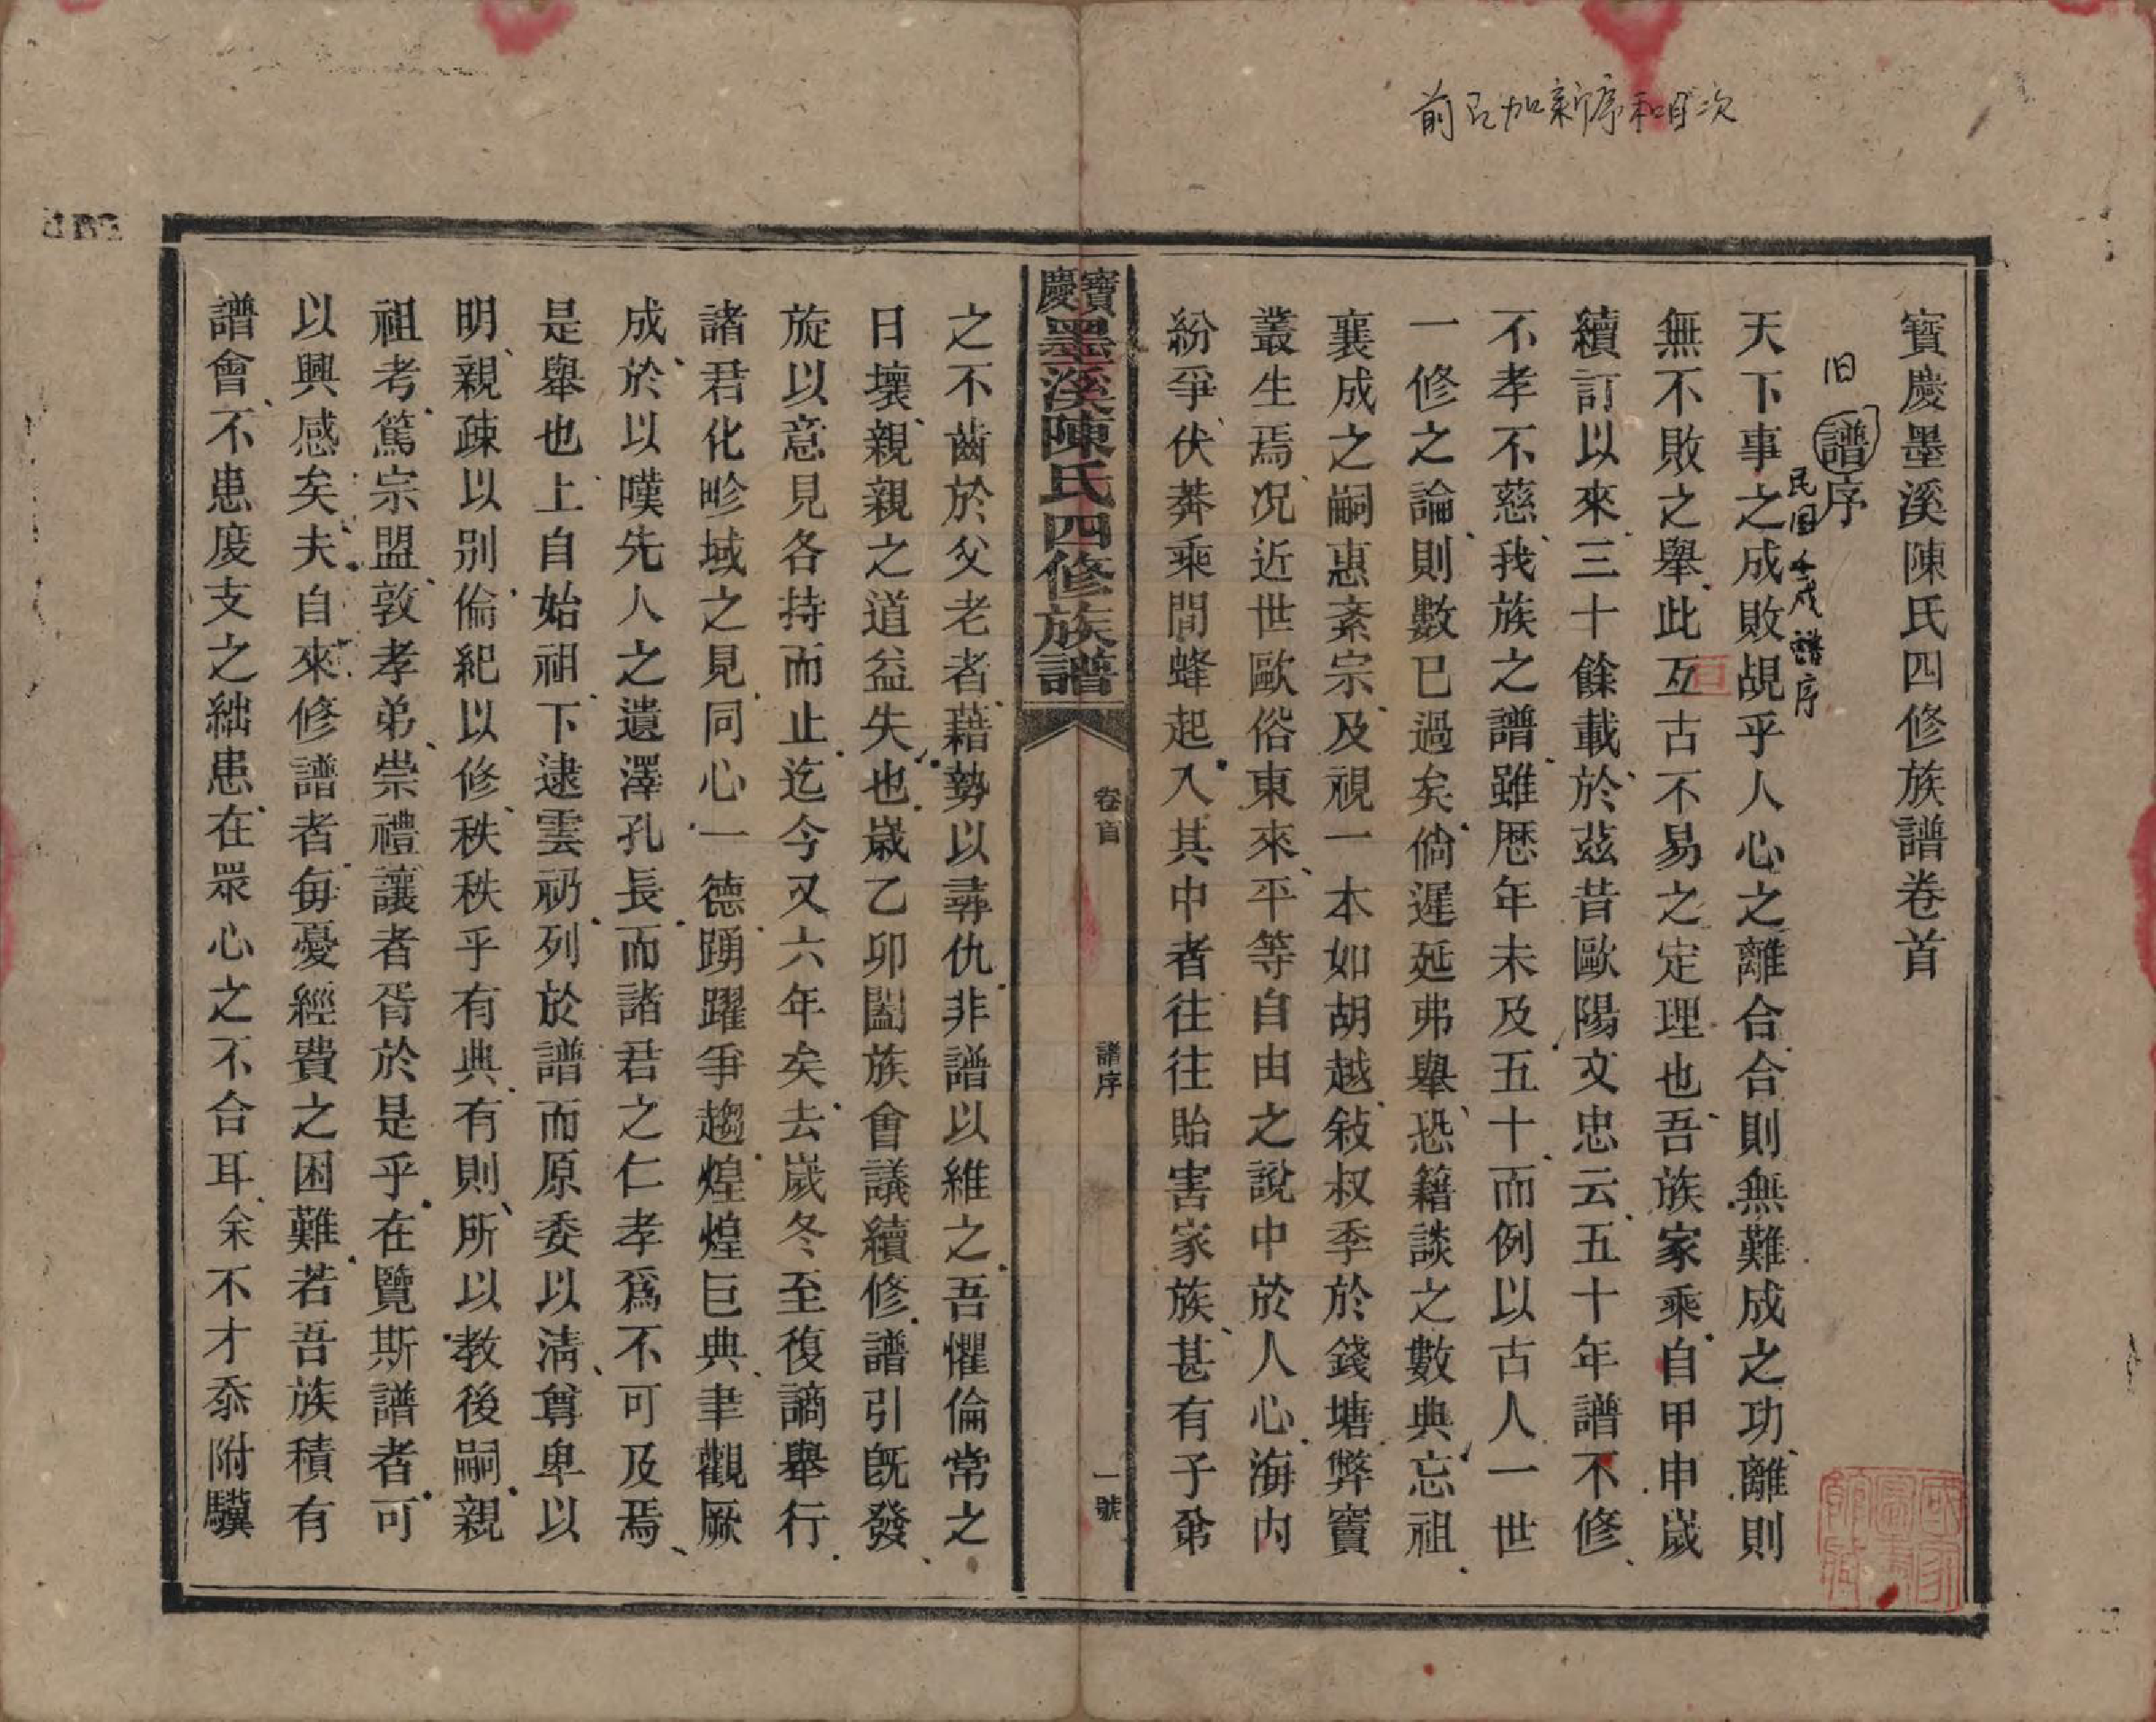 前已加新序和目次
寳慶墨溪陳氏四修族譜卷首
旧譜序
民国壬戌譜序
天下事之成敗覘乎人心之離合合則無難成之功離則
無不敗之舉此亙古不易之定理也吾族家乘自甲申嵗
續訂以來三十餘載於茲昔歐陽文忠云五十年譜不修
不孝不慈我族之譜雖歴年未及五十而例以古人一世
一修之論則數已過矣倘遲延弗舉恐籍談之數典忘祖
襄成之嗣惠紊宗及視一本如胡越敍叔季於錢塘弊竇
叢生焉况近世歐俗東來平等自由之說中於人心海内
紛爭伏莽乘間蜂起入其中者往往貽害家族甚有子弟
寳慶墨溪陳氏四修族譜
卷首
譜序
一號
之不齒於父老者藉勢以尋仇非譜以維之吾懼倫常之
日壞親親之道益失也嵗乙卯闔族會議續修譜引旣發
旋以意見各持而止迄今又六年矣去嵗冬至復謫舉行
諸君化畛域之見同心一德踴躍爭趨煌煌巨典聿觀厥
成於以嘆先人之遺澤孔長而諸君之仁孝爲不可及焉
是舉也上自始祖下逮雲礽列於譜而原委以淸尊卑以
明親疎以别倫紀以修秩秩乎有典有則所以教後嗣親
祖考篤宗盟敦孝弟崇禮讓者胥於是乎在覽斯譜者可
以興感矣夫自來修譜者每憂經費之困難若吾族積有
譜會不患度支之絀患在眾心之不合耳余不才忝附驥